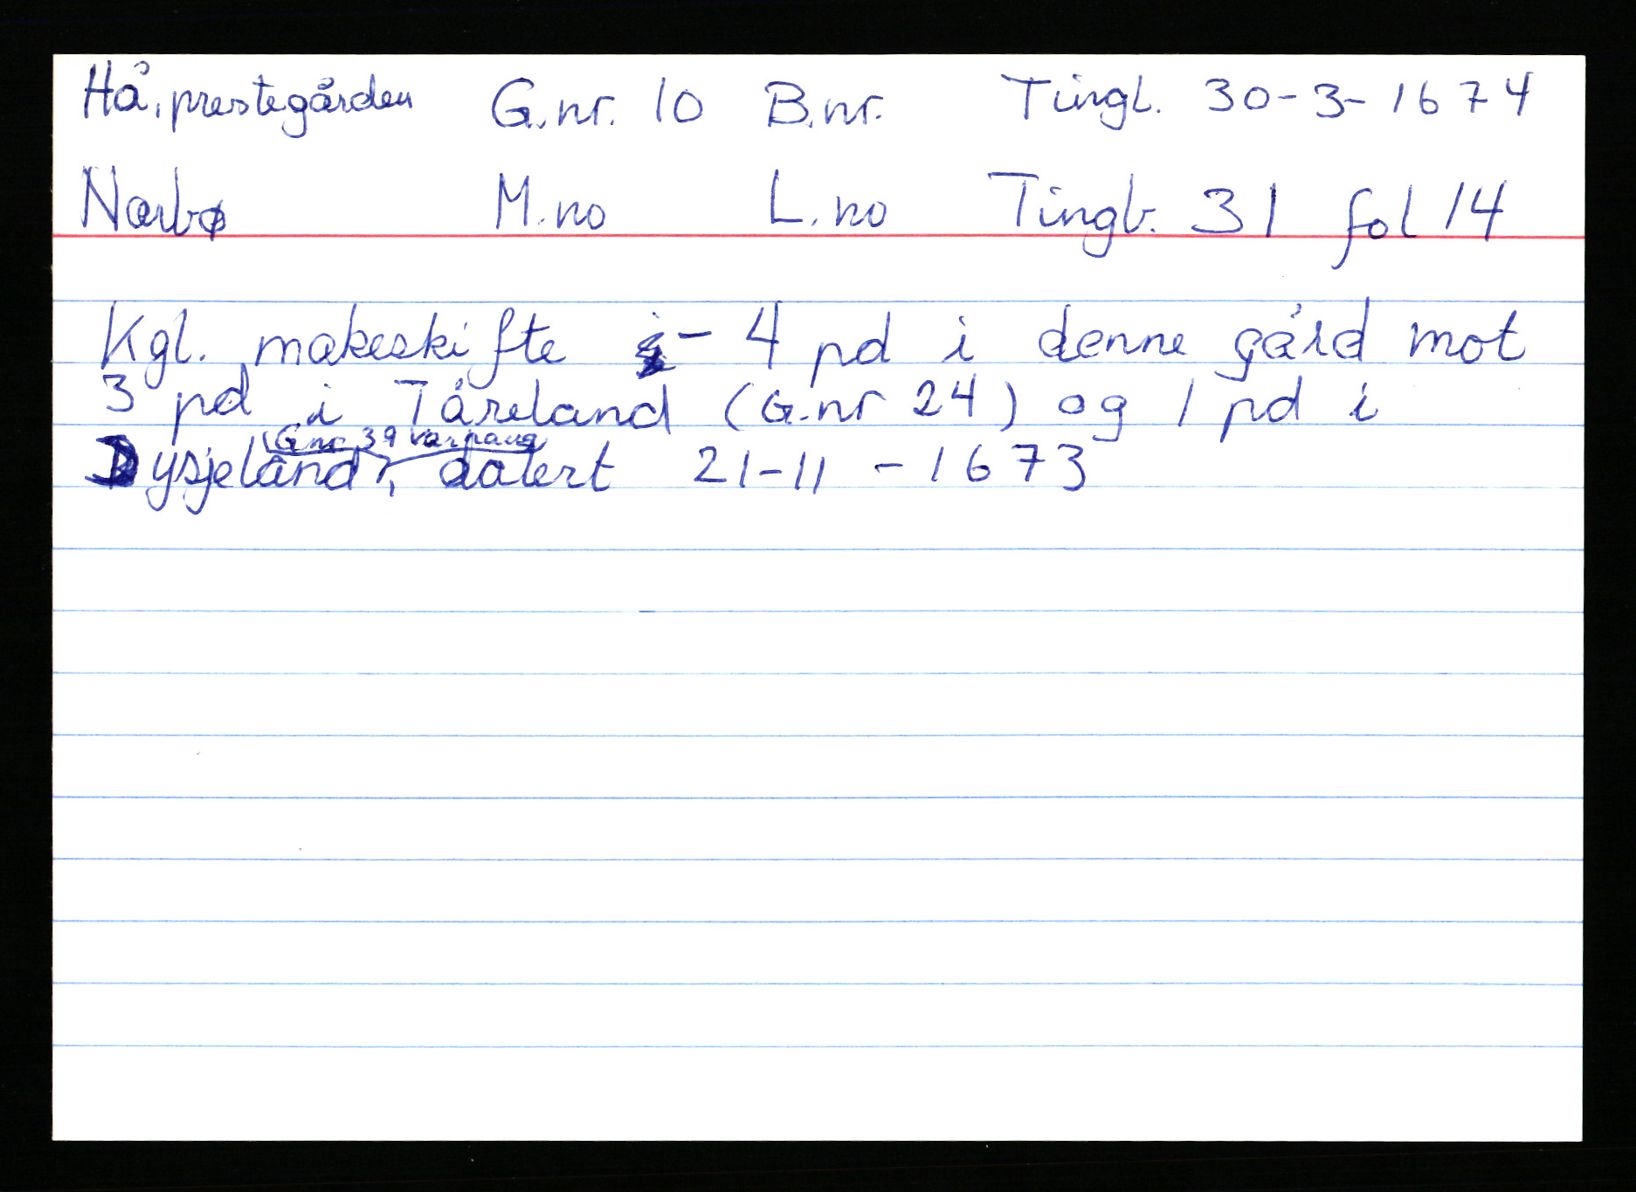 Hå, prestegården G.nr. 10 B.nr. Tingl. 30-3-1674
Nærbø M.no L.no Tingb. 31 fol 14
Kgl. makeskifte - 4 pd i denne gård mot
3 pd i Tåreland (G.nr 24) og 1 pd i
(G.nr 39 Varhaug
Dysjeland), datert 21-11-1673